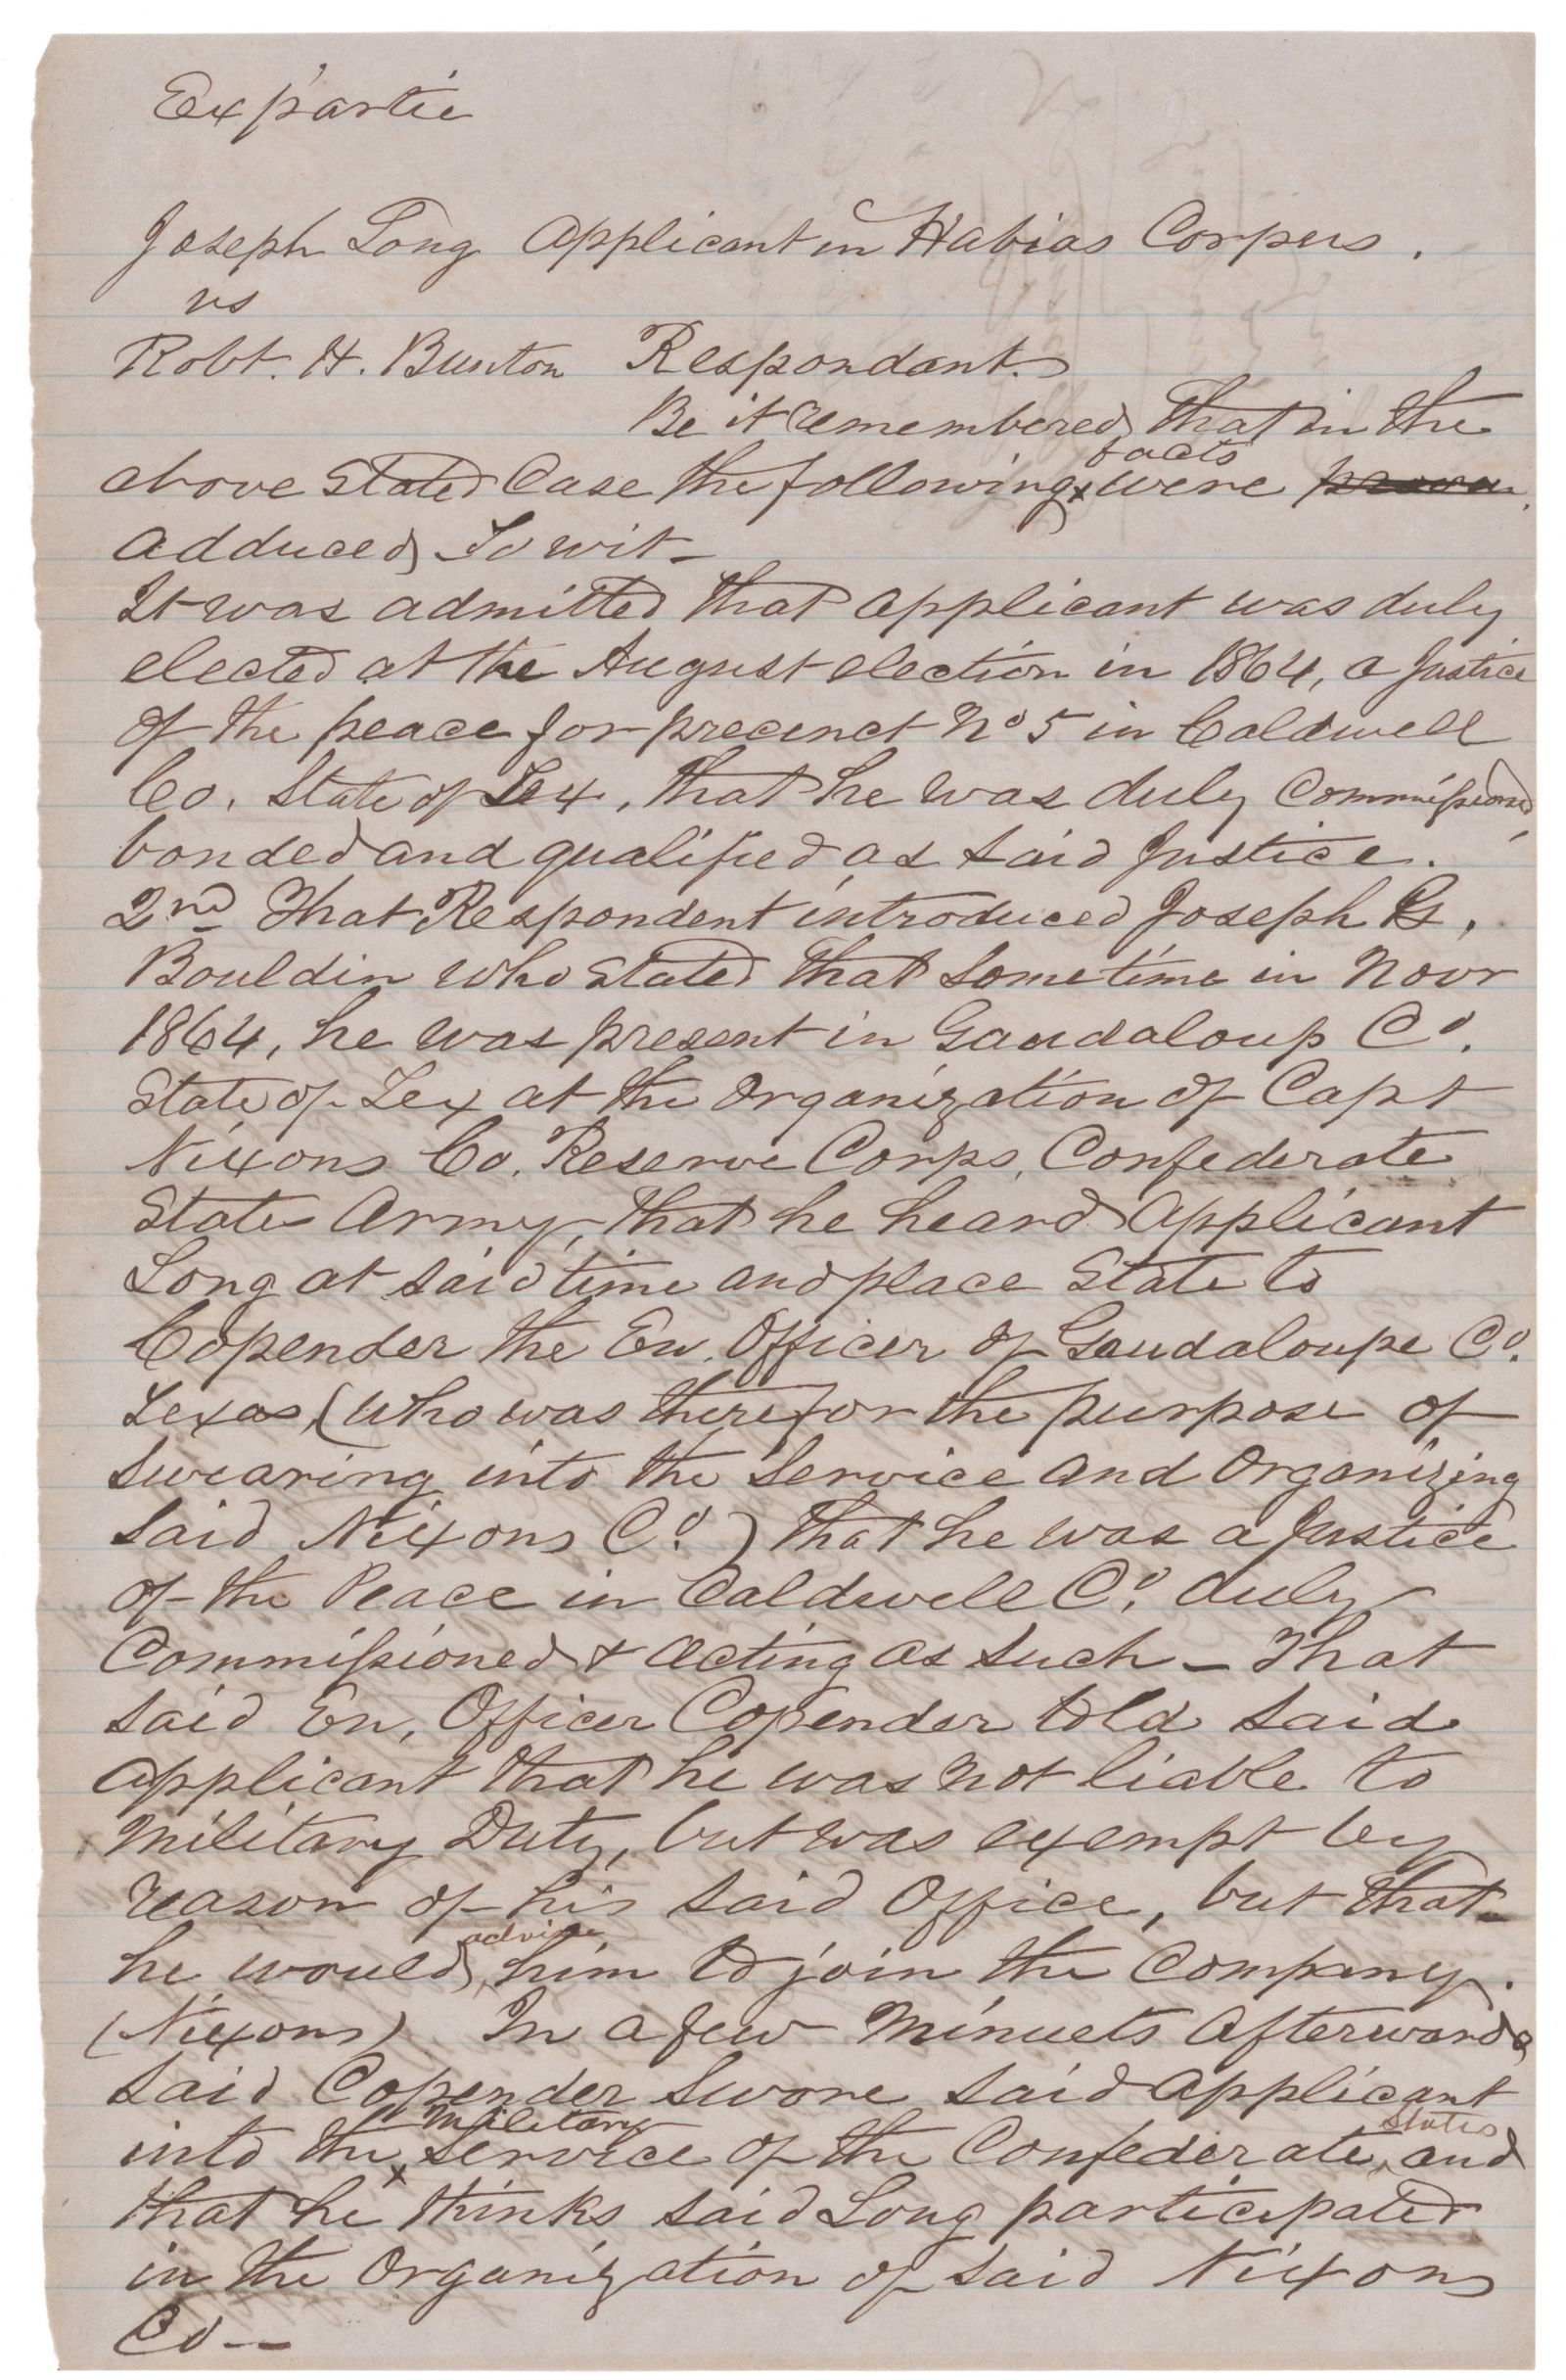 Expartie
Joseph Long Applicant in Habias Corpus.
vs
Robt. H. Bunton Respondant.
Be it remembered that in the
facts
above stated Case the following were proven
adduced, To wit-
It was admitted that applicant was duly
elected at the August election in 1864, a Justice
of the peace for precinct No 5 in Caldwell
Co. State of Tex, that he was duly Commissioned
bonded and qualified as said Justice.
2nd That Respondent introduced Joseph G.
Bouldin who stated that sometime in Novr
1864, he was present in Gaudaloup Co.
State of Tex at the organization of Capt
Nixons Co. Reserve Corps, Confederate
States Army, that he heard applicant
Long at said time and place State to
Copender the En. Officer of Gaudaloupe Co.
Texas, (who was there for the purpose of
swearing into the service and organizing
said Nixons Co.) that he was a Justice
of the Peace in Caldwell Co. duly
Commissioned & acting as such - That
said En, Officer Copender told said
applicant that he was not liable to
Military Duty, but was exempt by
reason of his said office, but that
advise
he would him to join the Company.
(Nixons) In a few minuets afterwards
said Copender swore said applicant
Military States
into the service of the Confederate and
that he thinks said Long participated
in the organization of said Nixons
Co--